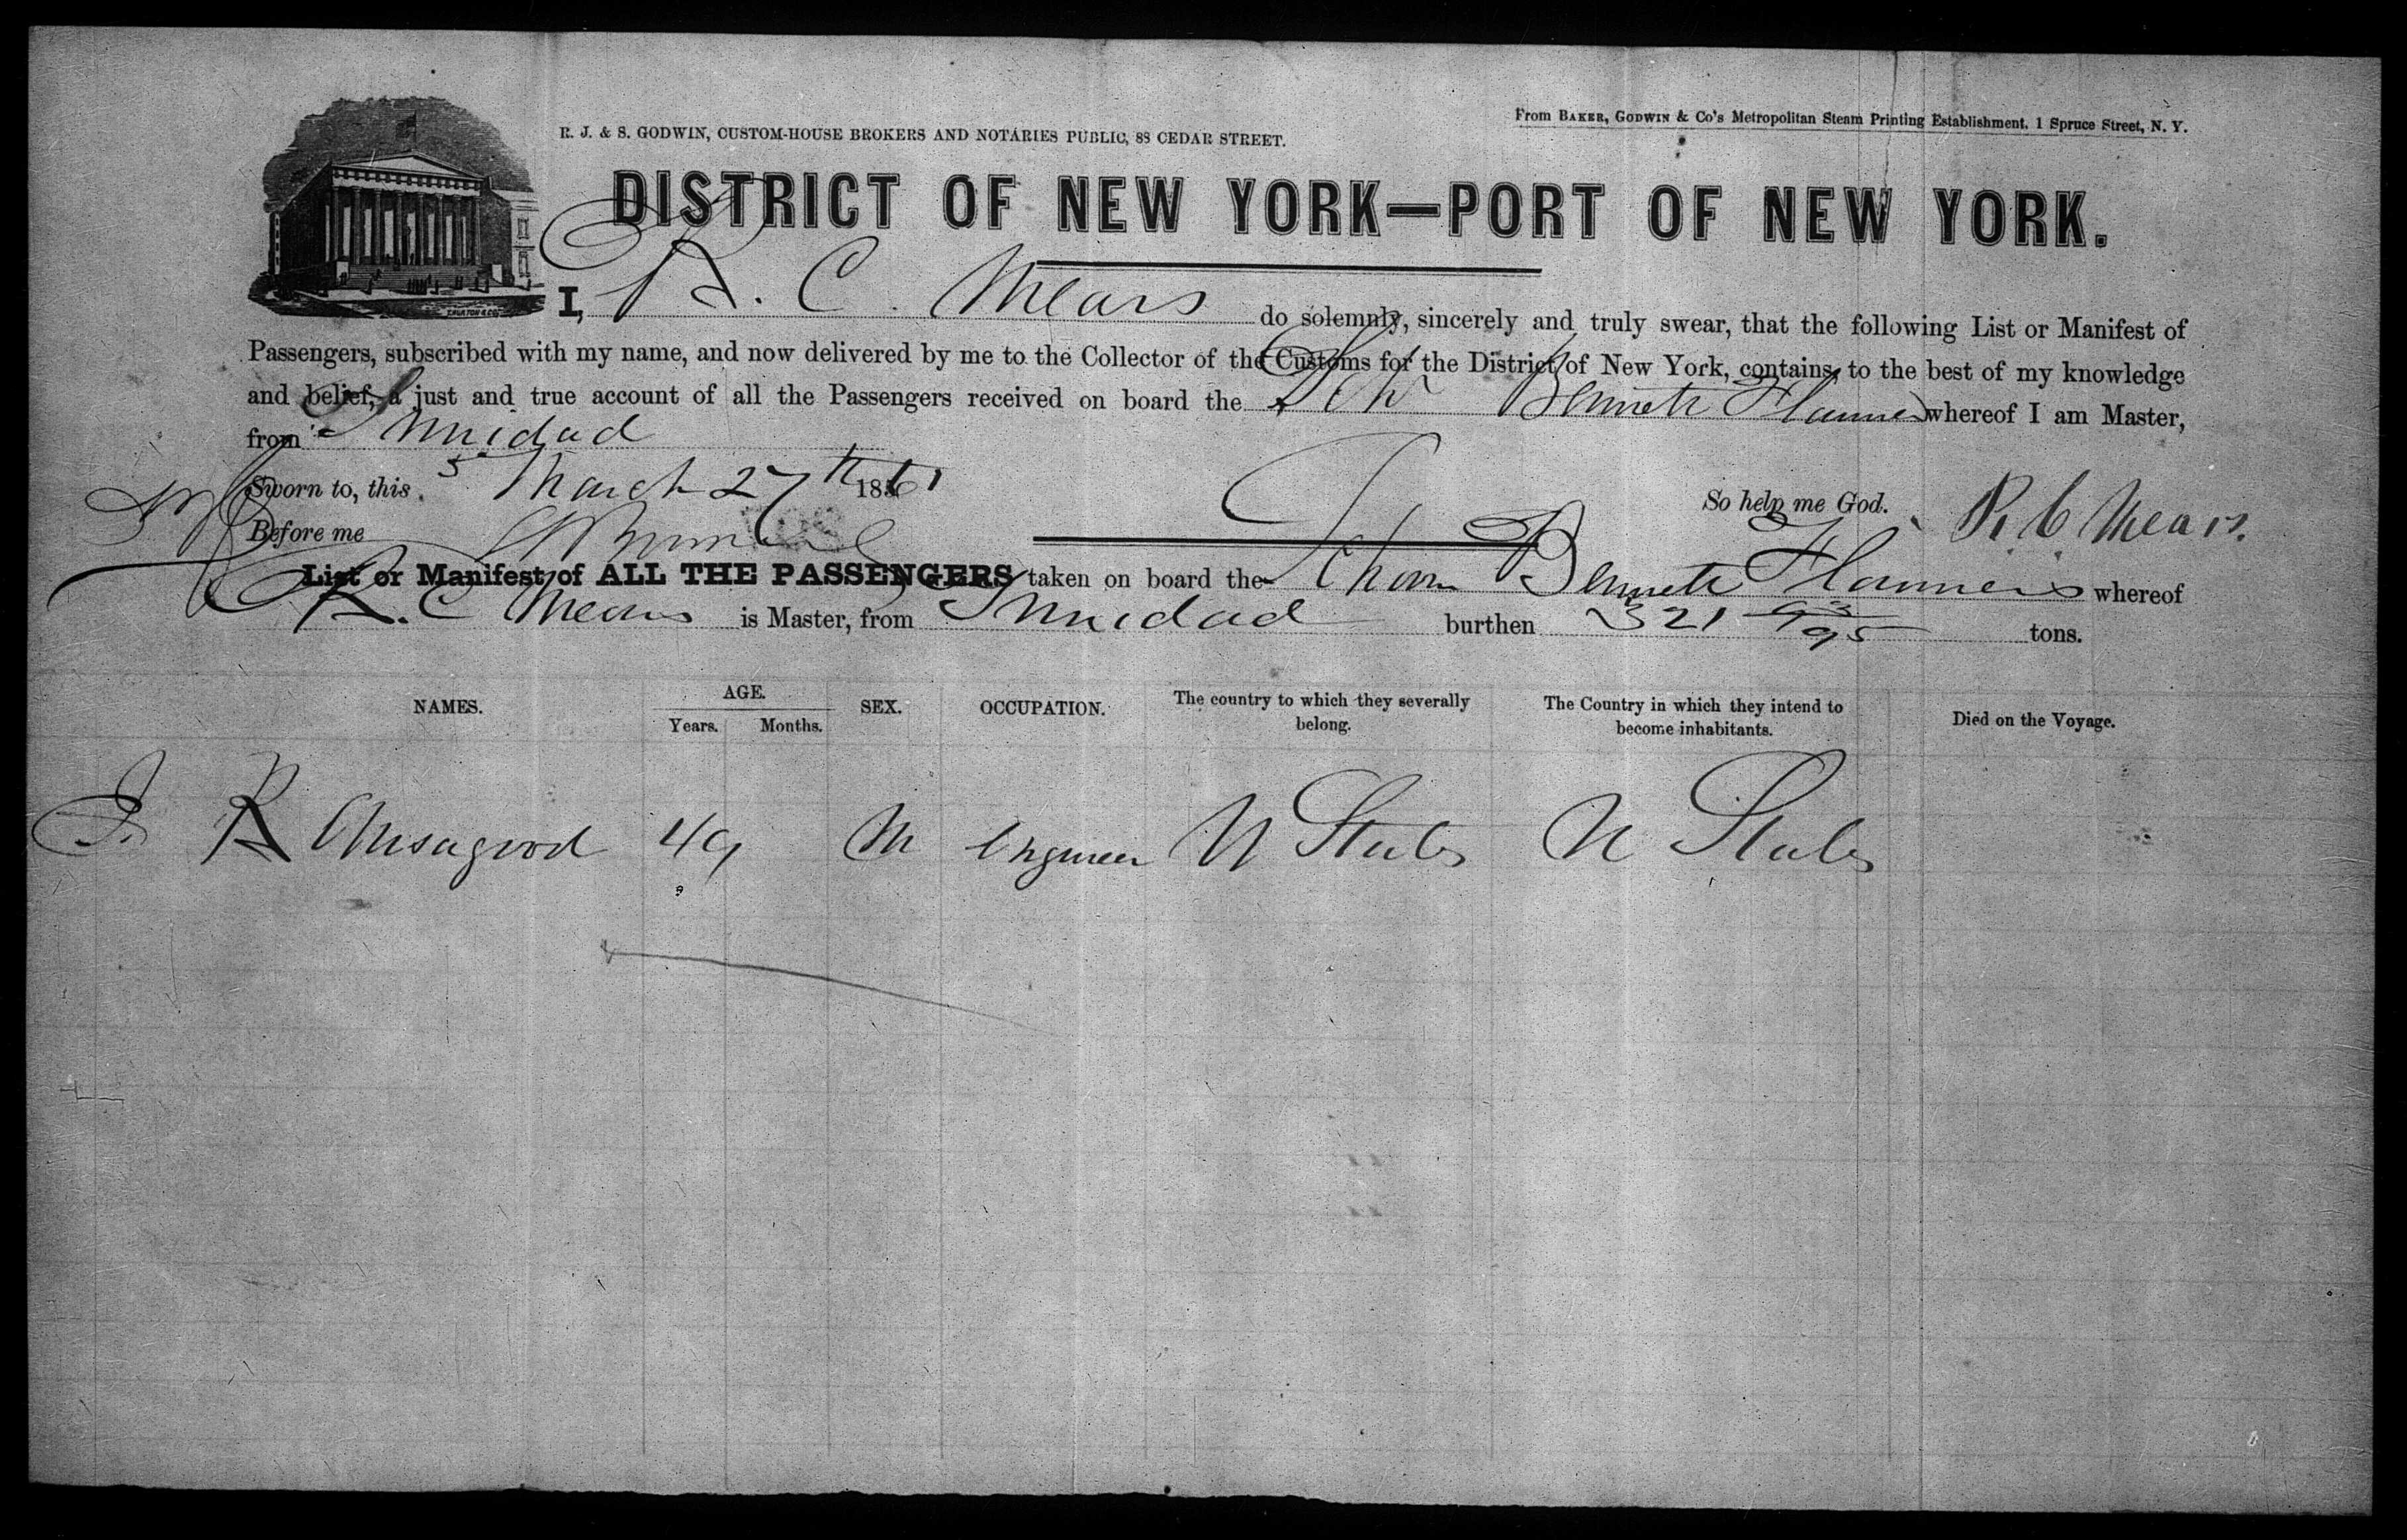 R. J. & S. GODWIN, CUSTOM-HOUSE BROKERS AND NOTARIES PUBLIC, 88 CEDAR STREET.
From BAKER, GODWIN & Co's Metropolitan Steam Printing Establishment, 1 Spruce Street, N. Y.
DISTRICT OF NEW YORK—PORT OF NEW YORK.
I, R. C. Mears do solemnly, sincerely and truly swear, that the following List or Manifest of
Passengers, subscribed with my name, and now delivered by me to the Collector of the Customs for the District of New York, contains, to the best of my knowledge
and belief, a just and true account of all the Passengers received on board the Schr Bennett Flanner whereof I am Master,
from Trinidad
Sworn to, this March 27th 1861 So help me God. R. C Mears.
Before me
List or Manifest of ALL THE PASSENGERS taken on board the Schom Bennett Flanners whereof
R. C Mears is Master, from Trinidad burthen 321 93/95 tons.
NAMES. AGE. Years. Months. SEX. OCCUPATION. The country to which they severally belong. The Country in which they intend to become inhabitants. Died on the Voyage.
R 49 M Engineer U States U States